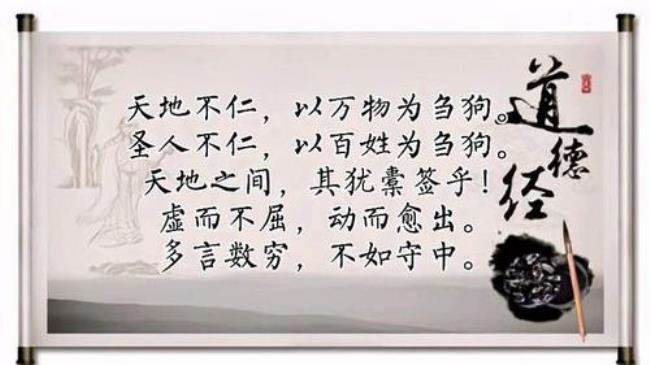 天地不仁，以万物为刍狗。
圣人不仁，以百姓为刍狗。
天地之间，其犹橐签乎！
虚而不屈，动而愈出。
多言数穷，不如守中。
道德经